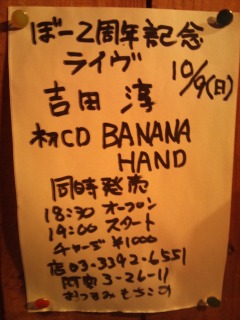 ぼー2周年記念
ライヴ
10/9(日)
吉田 淳
初CD BANANA
HAND
同時発売
18:30 オープン
19:00 スタート
チャージ ¥1000
店 03-3392-6551
3-26-11
おつまみ もちこみ